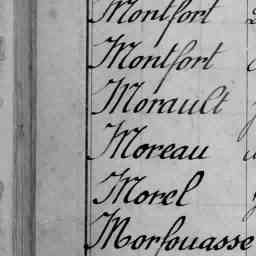 Montfort
Montfort
Morault
Moreau
Morel
Morfouasse